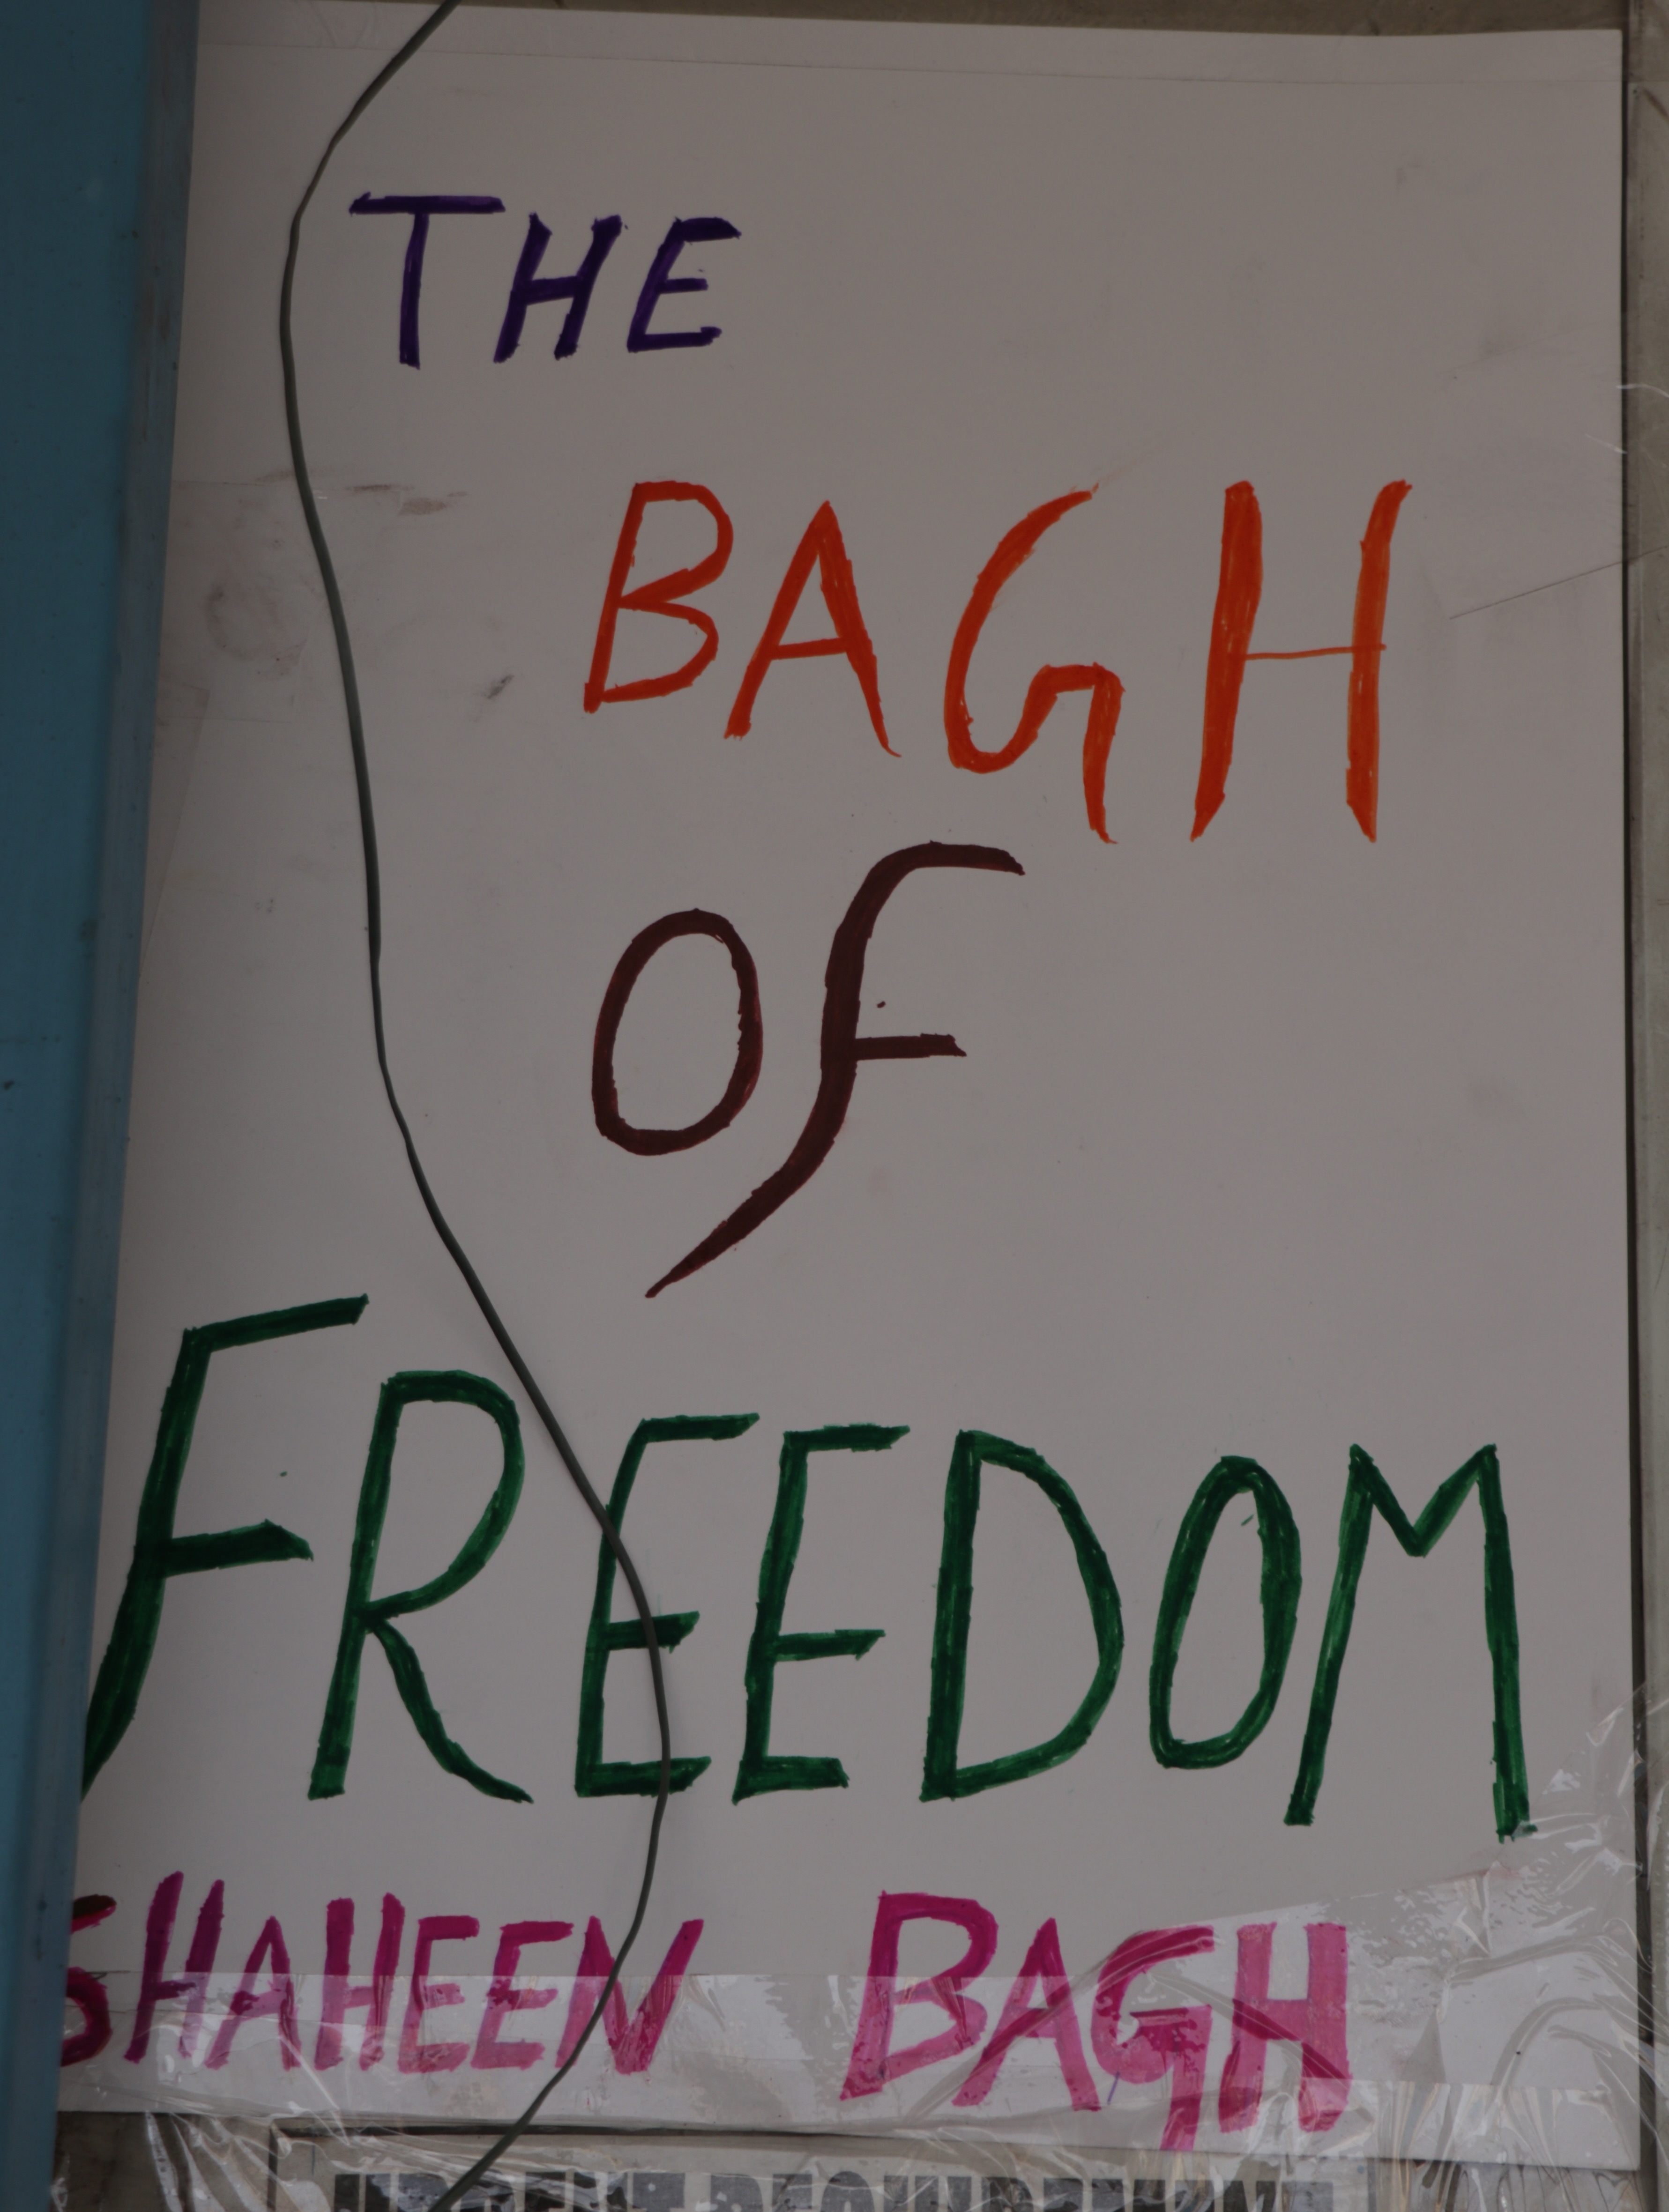 THE
BAGH
OF
FREEDOM
SHAHEEN BAGH